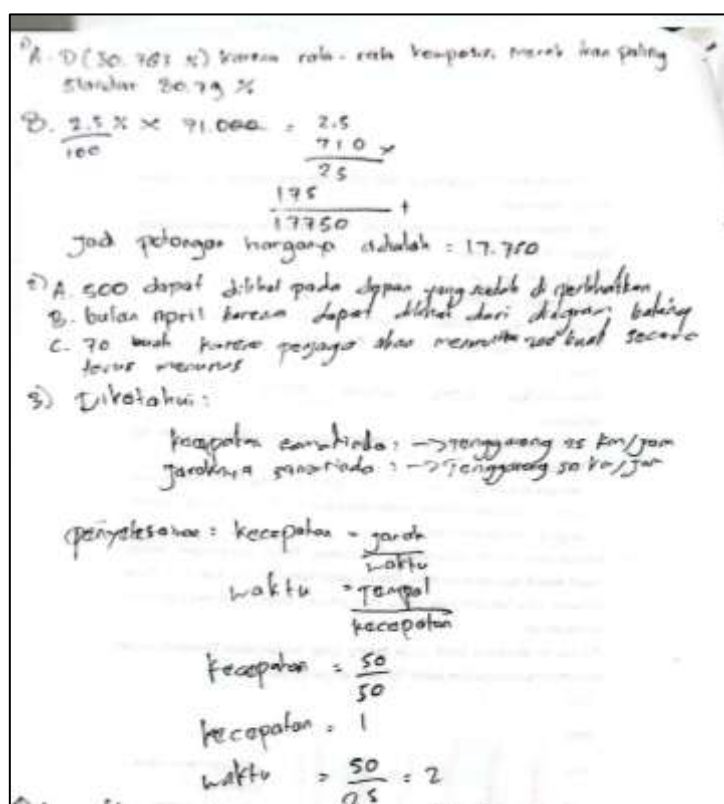 1) A. D (30.783 %) karena rata-rata komposisi merek ikan paling
standar 30.79 %
B. 2.5 % × 71.000 = 2.5
100
710 ×
25
175 +
17750
Jadi potongan harganya adalah = 17.750
2) A. 500 dapat dilihat pada yang sudah di perlihatkan
B. bulan April karena dapat dilihat dari diagram batang
C. 70 buah karena penjaga akan 200 buah secara
terus menurus
3) Diketahui:
kecepatan samarinda : -> Tenggarong 25 km/jam
Jaraknya samarinda : -> Tenggarong 50 km/jam
penyelesaian : kecepatan = jarak
waktu
waktu = Tempat
kecepatan
kecepatan = 50
50
kecepatan = 1
waktu = 50 = 2
25